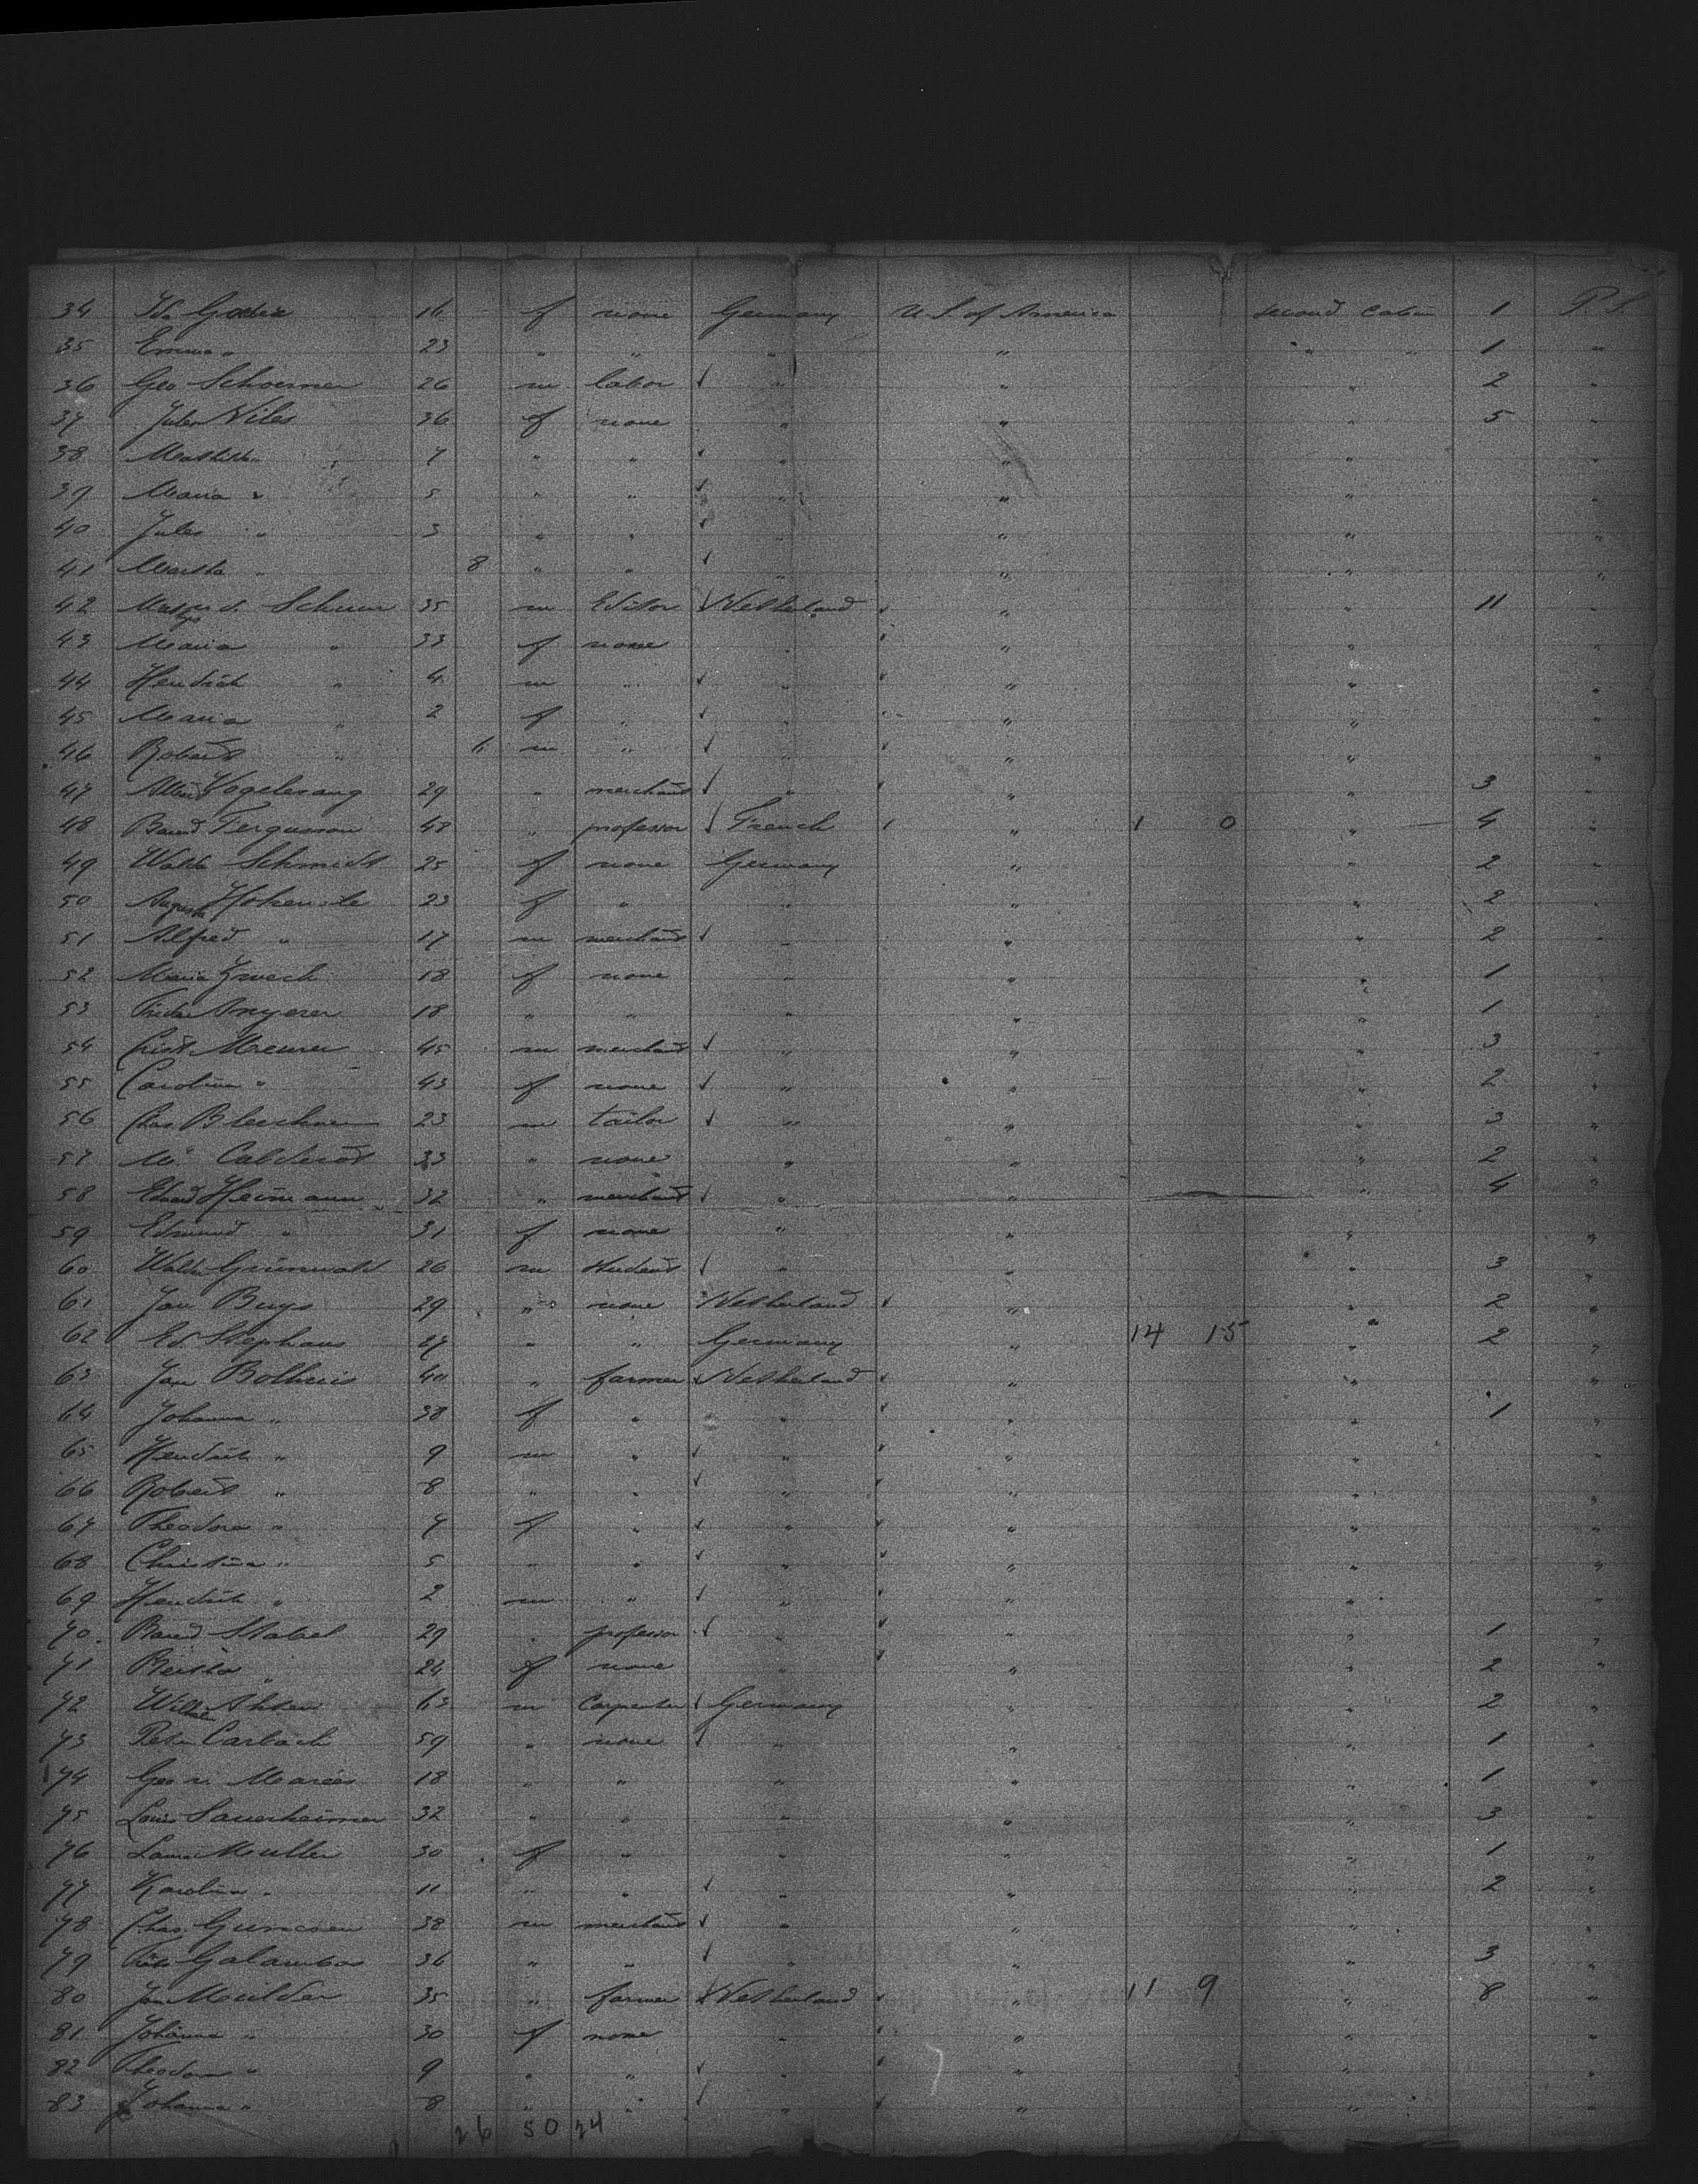 34 Ida 16 f none Germany U.S. of America second Cabin 1 P.S.
35 Emma " 23 " " " " " " 1 "
36 Geo Schoerner 26 m labor " " " 2 "
37 Niles 36 f none " " " 5 "
38 Mathilde 7 " " " " " "
39 Maria " 5 " " " " " "
40 Jules " 3 " " " " " "
41 Martha " 8 " " " " " "
42 Schuur 35 m Editor Netherland " " 11 "
43 Maria " 33 f none " " " "
44 Hendrik " 4 m " " " " "
45 Maria " 2 f " " " " "
46 Robert " 11 m " " " " "
47 Vogelesang 29 " merchant " " " 3 "
48 Fergusson 48 " professor French " 1 0 " 4 "
49 Schmidt 25 f none Germany " " 2 "
50 Augusta 23 f " " " " 2 "
51 Alfred " 17 m merchant " " " 2 "
52 Maria 18 f none " " " 1 "
53 18 " " " " " 1 "
54 45 m merchant " " " 3 "
55 Carolina " 43 f none " " " 2 "
56 Chas 23 m tailor " " " 3 "
57 33 " none " " " 2 "
58 Heimann 32 " merchant " " " 4 "
59 Edmund " 31 f none " " " "
60 Grünwald 26 m student " " " 3 "
61 Jan Buys 29 " none Netherland " " 2 "
62 Ed. Stephans 27 " " Germany " 14 15 " 2 "
63 Jan Bolhuis 40 " farmer Netherland " " "
64 Johanna " 38 f " " " " 1 "
65 Hendrik " 9 m " " " " "
66 Robert " 8 " " " " " "
67 Theodora " 7 f " " " " "
68 Christina " 5 " " " " " "
69 Hendrik " 2 m " " " " "
70 Stabel 29 " professor " " " 1 "
71 Bertha " 24 f none " " " 2 "
72 Wilhelm 63 m Carpenter Germany " " 2 "
73 Peter Carbach 59 " none " " " 1 "
74 Geo v. Marées 18 " " " " " 1 "
75 Louis Sauerheimer 32 " " " " " 3 "
76 30 f " " " " 1 "
77 Karolina " 11 " " " " " 2 "
78 Chas. 38 m merchant " " " "
79 Galambos 36 " " " " " 3 "
80 Jan Moulder 35 " farmer Netherland " 11 9 " 8 "
81 Johanna " 30 f none " " " "
82 Theodora " 9 " " " " " "
83 Johanna " 8 " " " " " "
26 50 24